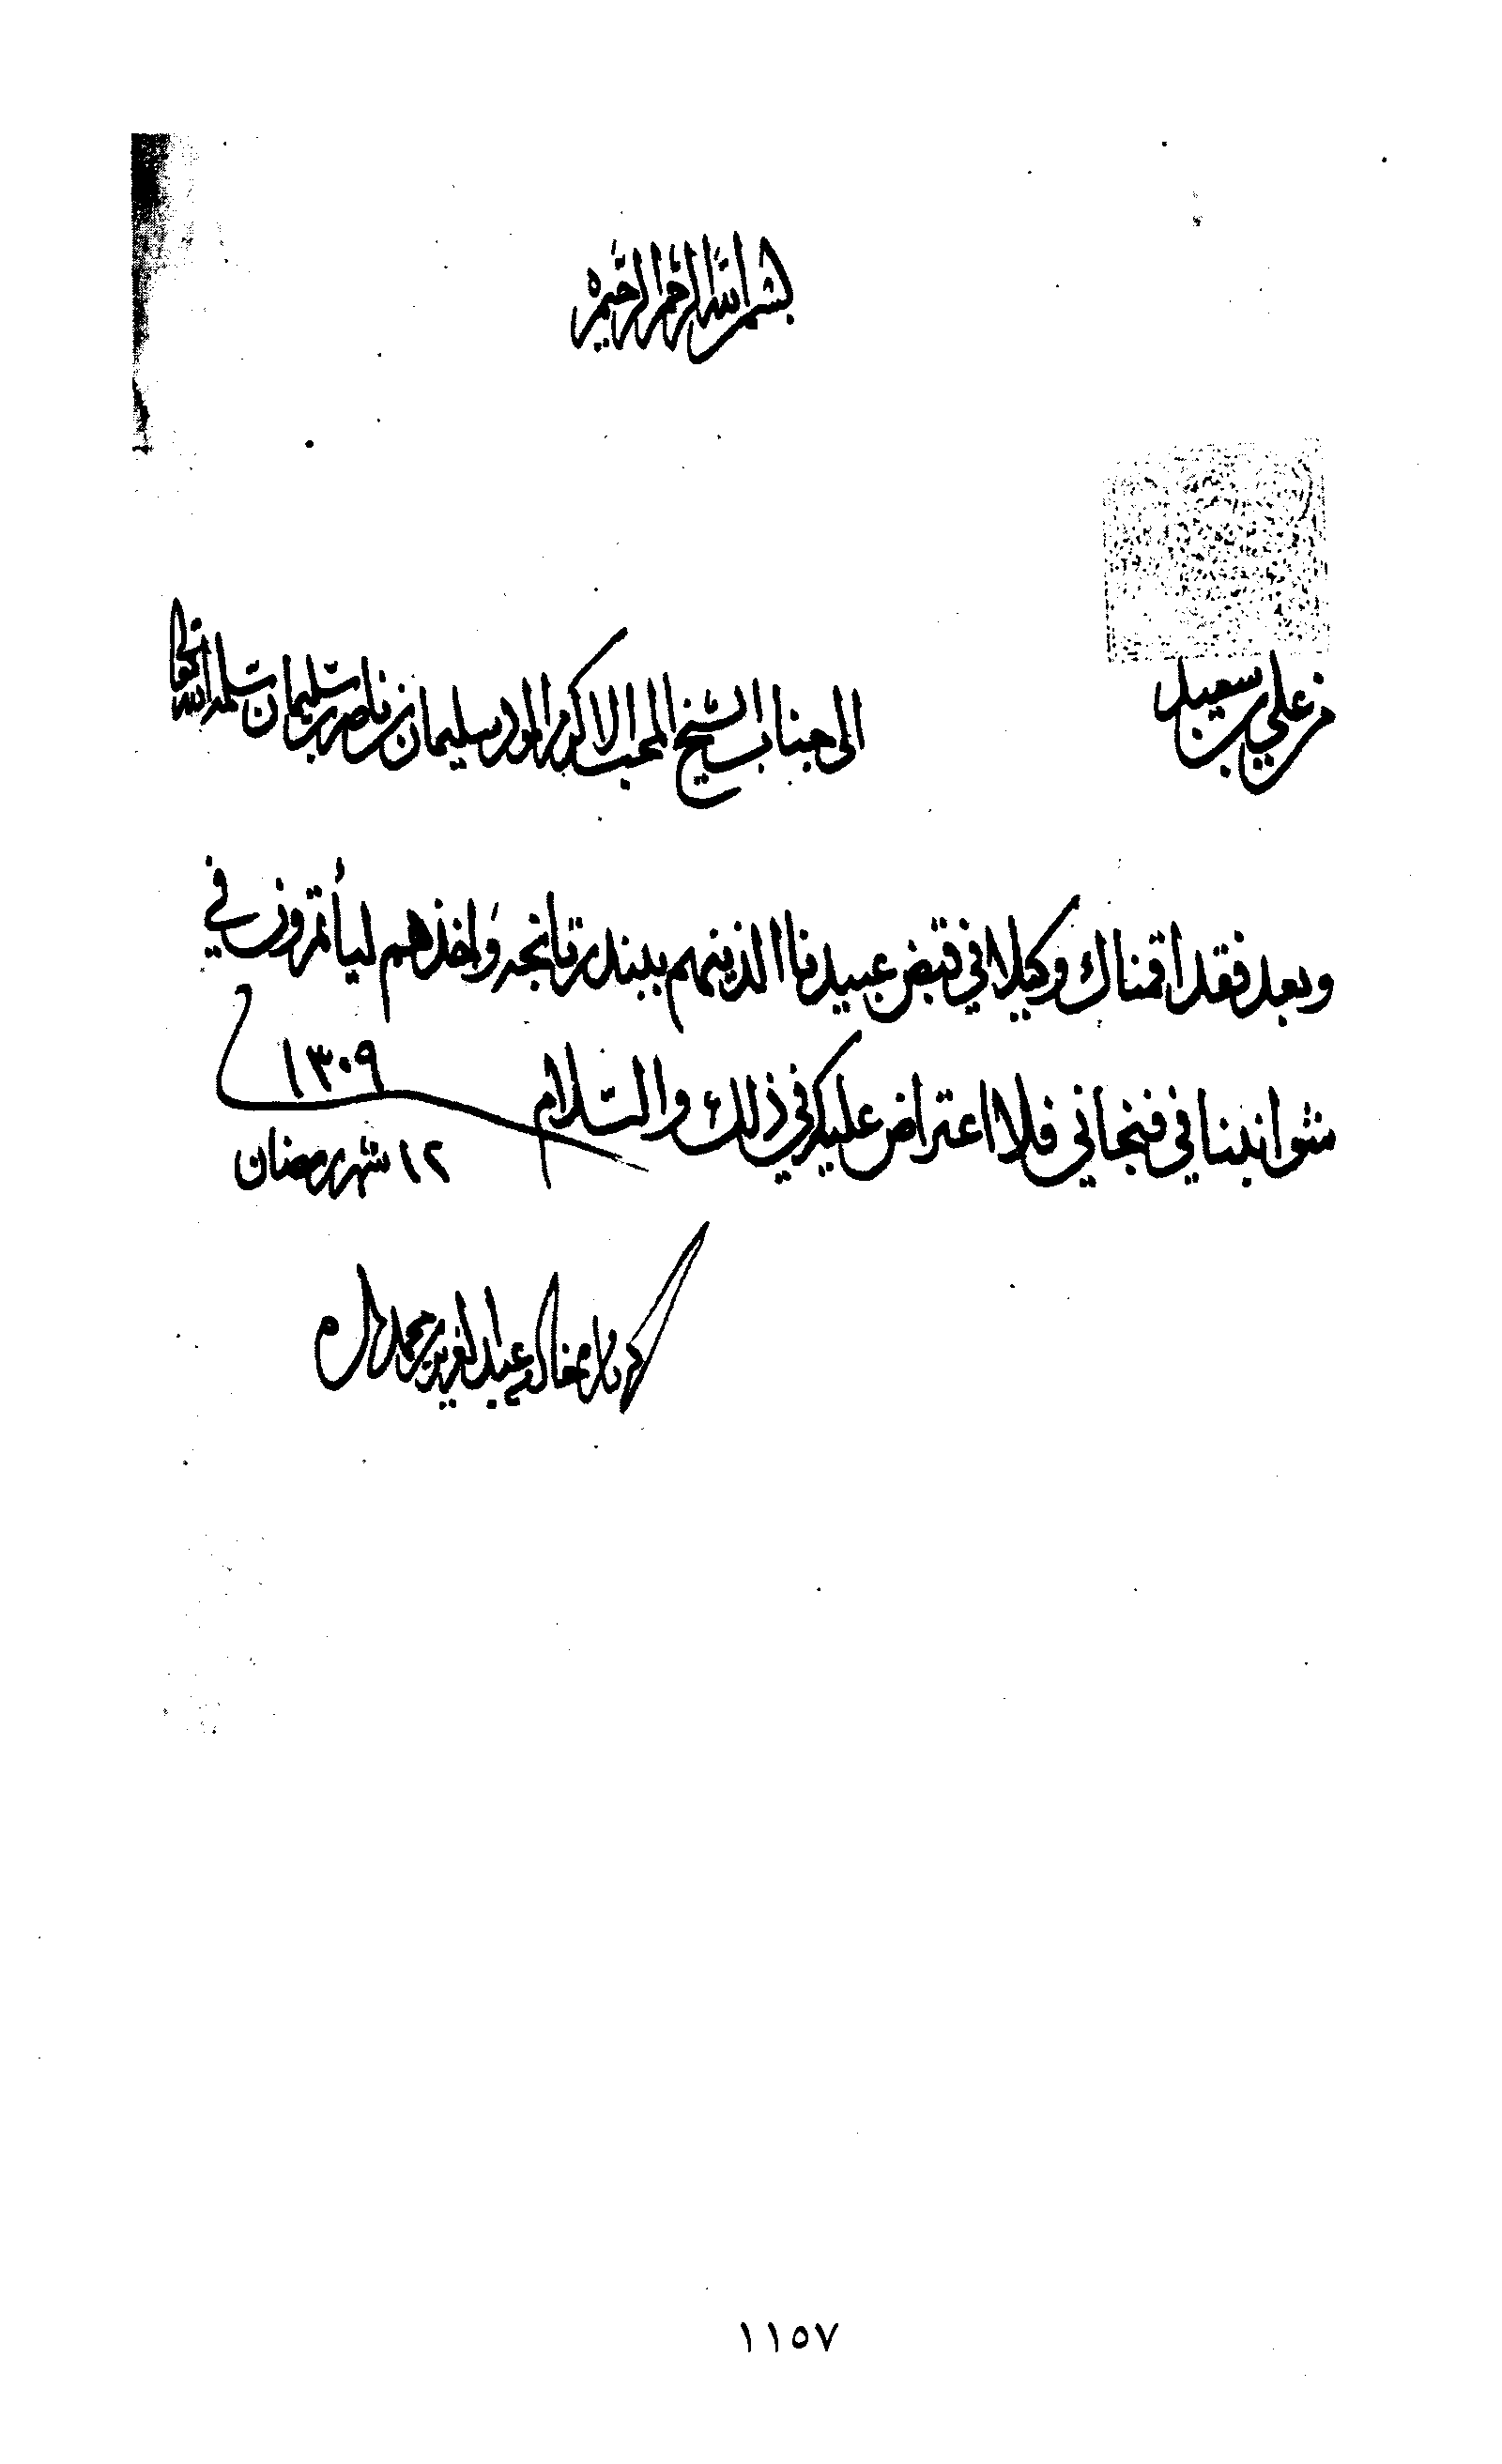 بسم الله الرحمن الرحيم
من علي بن سعيد
الى جناب الشيخ المحب الاكرم الاود سليمان بن ناصر بن سليمان سلمه الله تعالى
وبعد فقد اقمناك وكيلا في قبض عبيدنا الذين هم ببندر تانجه واخذهم ليأتمرون في
شوانبنا في فنجاني فلا اعتراض عليكم في ذلك والسلام
١٣٠٩
١٢ شهر رمضان
عبد العزيز بن محمد
١١٥٧